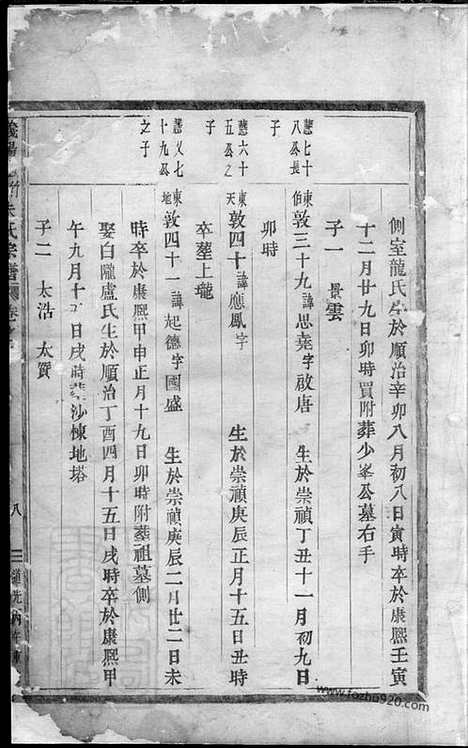 側室龍氏生於順治辛卯八月初八日寅時卒於康熙壬寅
十二月廿九日卯時買附葬少峯公墓右手
子一　景雲
慧七十八公長子
東伯敦三十九諱思堯字啟唐　生於崇禎丁丑十一月初九日
卯時
慧六十五公之子
東天敦四十諱應鳳字　生於崇禎庚辰正月十五日丑時
卒塟上壠
慧乂七十九公之子
東地敦四十一諱起德字國盛　生於崇禎庚辰二月廿二日未
時卒於康熙甲申正月十九日卯時附塟祖墓側
娶白隴盧氏生於順治丁酉四月十五日戌時卒於康熙甲
午九月十日戌時塟沙棟地塔
子二　太浩　太質
朱氏宗譜
八
www.fozhu920.com